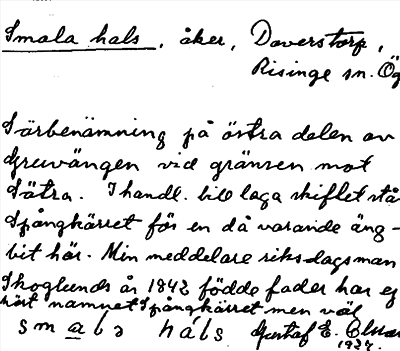 Smala hals, åker, Daverstorp,
Risinge sn. Ög
Särbenämning på östra delen av
Gruvängen vid gränsen mot
Sätra. I handl. till laga skiftet stå
Spångkärret för en då varande äng-
bit här. Min meddelare riksdagsman
Skoglunds år 1842 födde fader har ej
hört namnet Spångkärret men väl
smala hals Gustaf E.
1927.